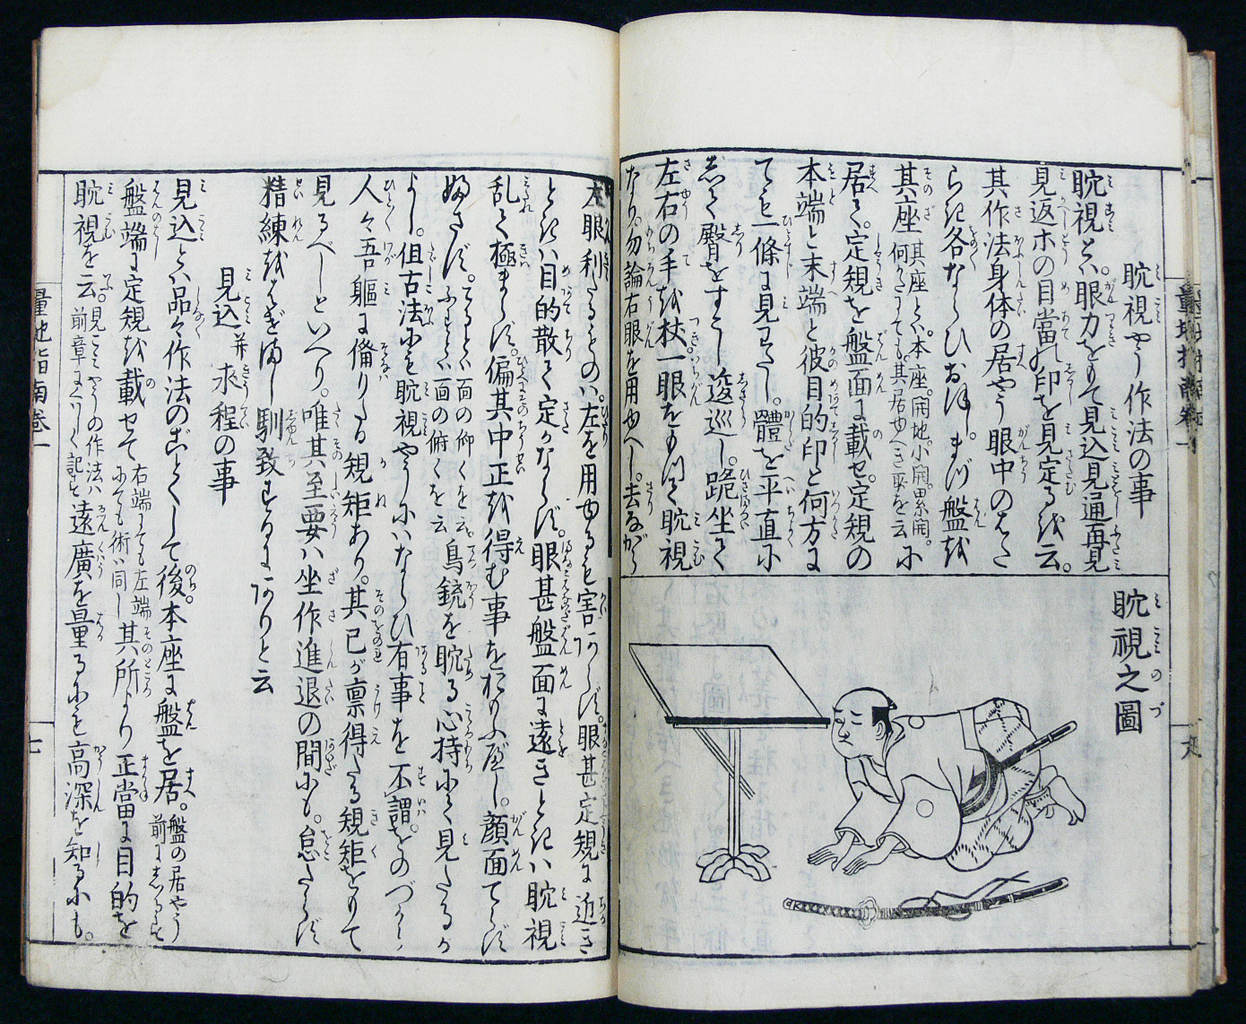 眈視やう作法の事
眈視とハ。眼力をもて見込見通再見
見返ホの目當の印を見定るを云。
其作法身体の居やう眼中のはた
らき各ならひおほし。まづ盤を
其座 其座とハ。本座。開地。小開。累開。何れにても。其居ゆべき所を云 に
居て。定規を盤面に載せ。定規の
本端と末端と彼目的印と何方に
ても一條に見わたし。體を平直に
して臀をすこし逡巡し。跪坐て
左右の手を杖一眼をもつて眈視
なり。勿論右眼を用ゆべし。去ながら
眈視之圖
左眼利たるものハ。左を用ゆるも害あらず。眼甚定規に近き
ときハ目的散て定かならず。眼甚盤面に遠きときハ眈視
乱て極まらず。偏其中正を得む事をおもふべし。顔面てらず
ふさず。てるとハ面の仰くを云。ふすとハ面の俯くを云 鳥銃を眈る心持にて見たるが
よし。但古法にも眈視やうにハならひ有事を不謂。をのづから
人々吾軀に備りたる規矩あり。其已が禀得たる規矩をもて
見るべしといへり。唯其至要ハ坐作進退の間にも。怠たらず
精練をはげまし馴致するにありと云
見込并求程の事
見込とハ品々作法のごとくして後。本座に盤を居。盤の居やう前にしるす
盤端に定規を載せて 右端にても左端にても術ハ同し 其所より正當に目的を
眈視を云。見こみやうの作法ハ前章にくはしく記す 遠廣を量るにも高深を知るにも。
量地指南卷一
七